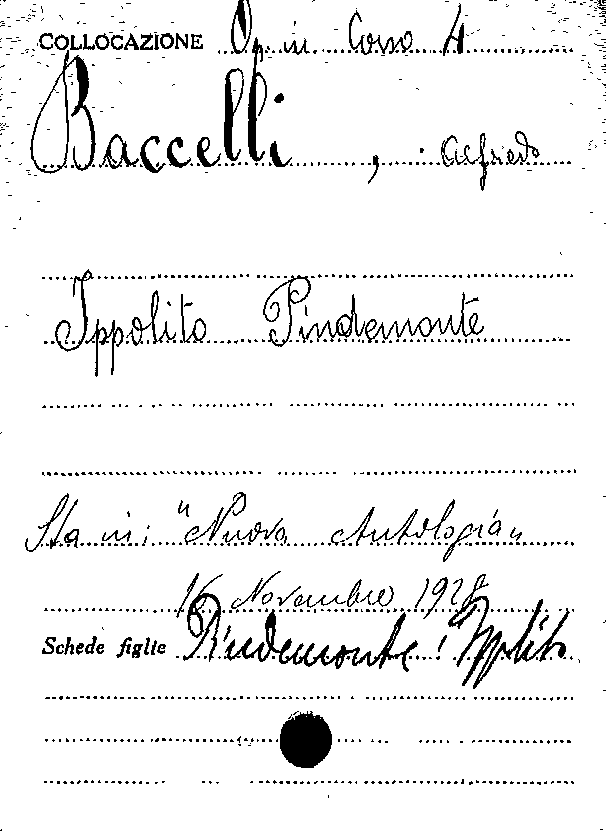 COLLOCAZIONE Op. in Corso 4
Baccelli, Alfredo
Ippolito Pindemonte
Sta in: "Nuova Antologia"
16 Novembre 1928
Schede figlie Pindemonte: Ippolito